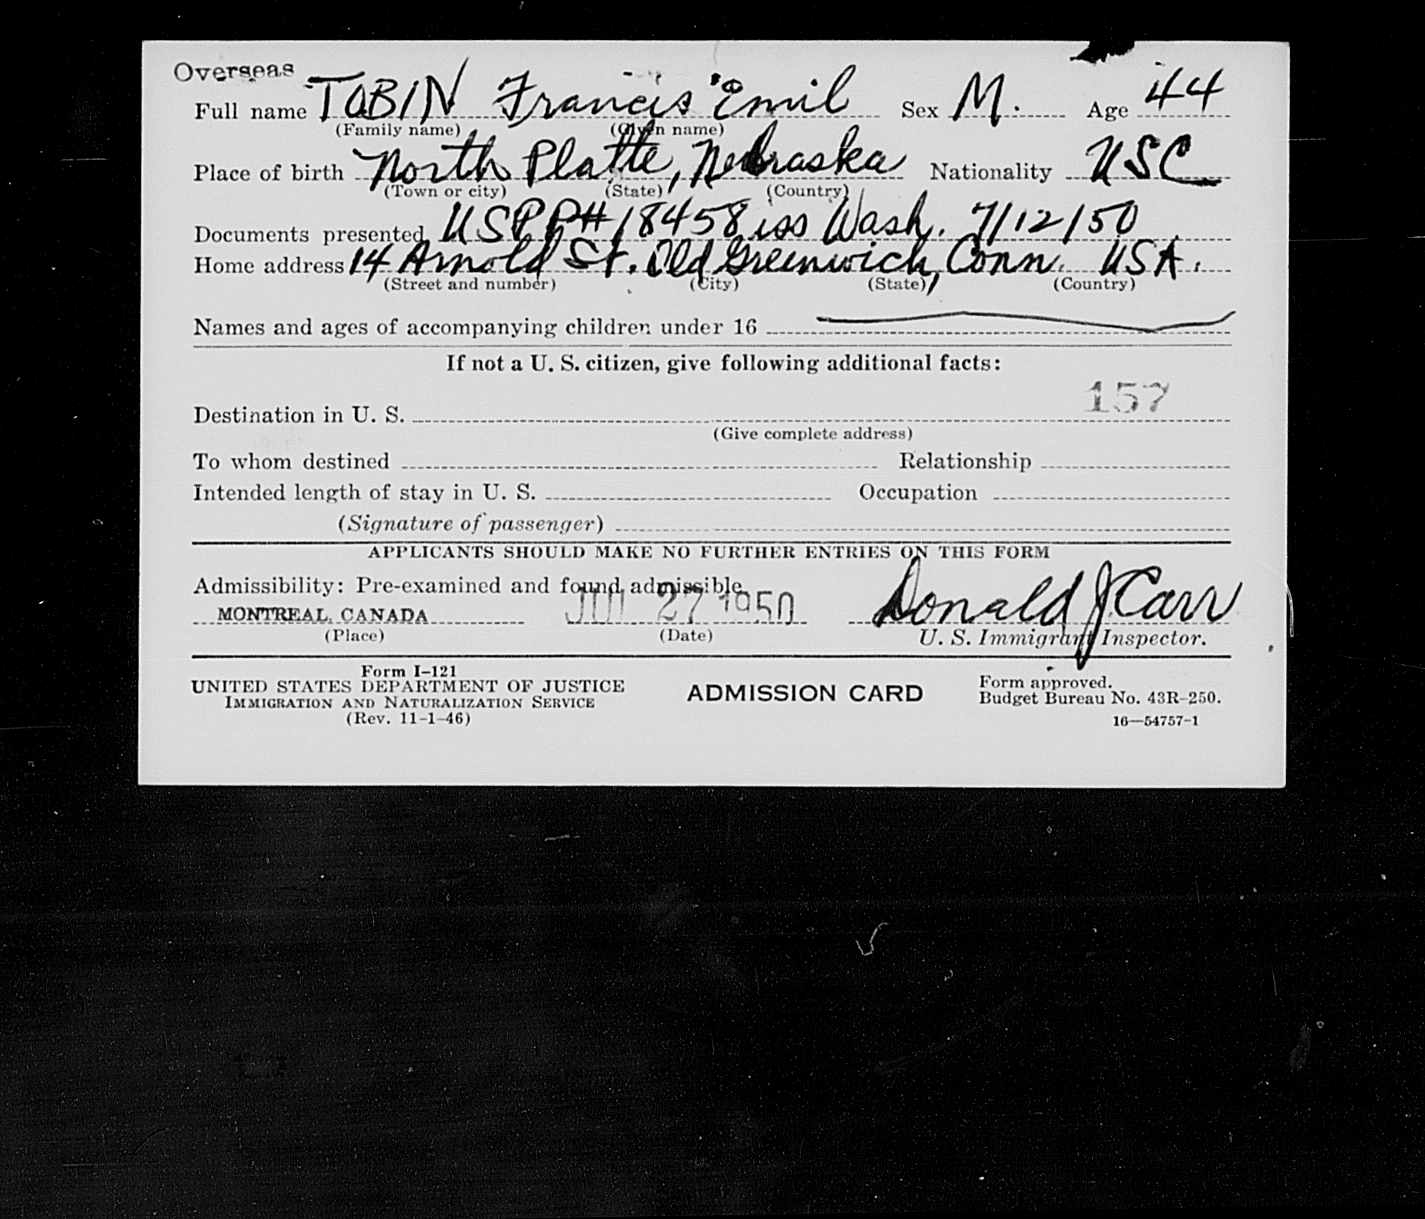 Overseas
Full name TOBIN Francis Emil Sex M. Age 44
(Family name) (Given name)
Place of birth North Platte, Nebraska Nationality USC
(Town or city) (State) (Country)
Documents presented USPP# 18458 iss Wash. 7/12/50
Home address 14 Arnold St. Old Greenwich, Conn. USA.
(Street and number) (City) (State) (Country)
Names and ages of accompanying children under 16
If not a U. S. citizen, give following additional facts:
157
Destination in U. S.
(Give complete address)
To whom destined Relationship
Intended length of stay in U. S. Occupation
(Signature of passenger)
APPLICANTS SHOULD MAKE NO FURTHER ENTRIES ON THIS FORM
Admissibility: Pre-examined and found admissible
MONTREAL, CANADA JUL 27 1950 Donald J Carr
(Place) (Date) U. S. Immigrant Inspector.
Form I-121
UNITED STATES DEPARTMENT OF JUSTICE
IMMIGRATION AND NATURALIZATION SERVICE
(Rev. 11-1-46)
ADMISSION CARD
Form approved.
Budget Bureau No. 43R-250.
16—54757-1